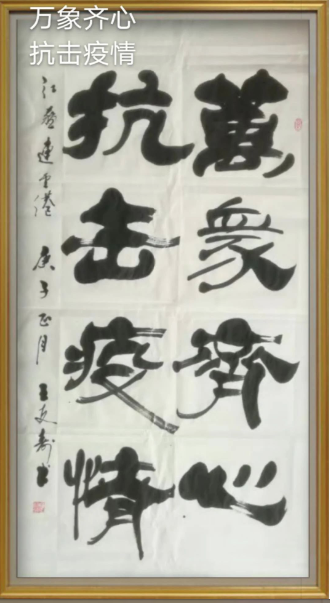 万象齐心
抗击疫情
萬衆齊心
抗击疫情
江蘇連云港 庚子正月 王友寿书